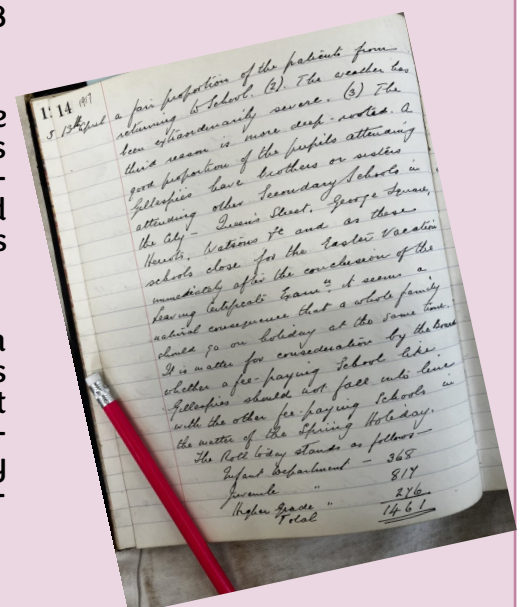 114 1917
5 13th April a fair proportion of the patients from
returning to School. (2). The weather has
been extraordinarily severe. (3) The
third reason is more deep-rooted. A
good proportion of the pupils attending
Gillespies have brothers or sisters
attending other Secondary Schools in
the City – Queen's Street, George Square,
Heriots, Watsons &c and as these
schools close for the Easter Vacation
immediately after the conclusion of the
Leaving Certificate Examns it seems a
natural consequence that a whole family
should go on holiday at the same time.
It is matter for consideration by the Board
whether a fee-paying School like
Gillespies should not fall into line
with the other fee-paying Schools in
the matter of the Spring Holiday.
The Roll today stands as follows –
Infant Department – 368
Juvenile " 817
Higher Grade " 276
Total 1461